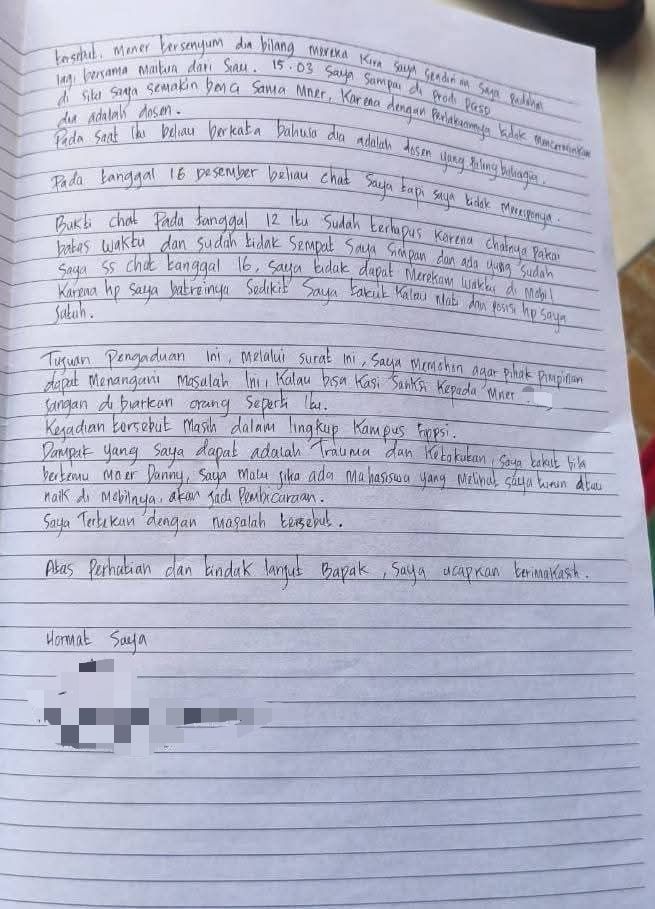 tersebut. Mener tersenyum dia bilang mereka kira saya sendirian saya padahal
lagi bersama Maitua dari Siau. 15.03 saya sampai di Prodi PGSD
di situ saya semakin benci sama Mner, karena dengan Perlakuannya tidak mencerminkan
dia adalah dosen.
Pada saat itu beliau berkata bahwa dia adalah dosen yang paling bahagia.
Pada tanggal 16 Desember beliau chat saya tapi saya tidak meresponya.
Bukti chat Pada tanggal 12 itu sudah terhapus karena chatnya pakai
batas waktu dan sudah tidak sempat saya simpan dan ada yang sudah
saya ss chat tanggal 16, saya tidak dapat Merekam waktu di Mobil
karena hp saya batreinya sedikit saya takut kalau mati dan posisi hp saya
jatuh.
Tujuan Pengaduan ini, Melalui surat ini, saya Memohon agar pihak pimpinan
dapat Menangani Masalah ini, kalau bisa kasi sanksi kepada Mner
jangan di biarkan orang seperti itu.
Kejadian tersebut Masih dalam lingkup kampus Fipsi.
Dampak yang saya dapat adalah Trauma dan Ketakutan, saya takut bila
bertemu Mner Danny, saya Malu jika ada Mahasiswa yang Melihat saya turun atau
naik di Mobilnya, akan jadi Pembicaraan.
Saya Tertekan dengan masalah tersebut.
Atas Perhatian dan tindak lanjut Bapak, saya ucapkan terimakasih.
Hormat Saya